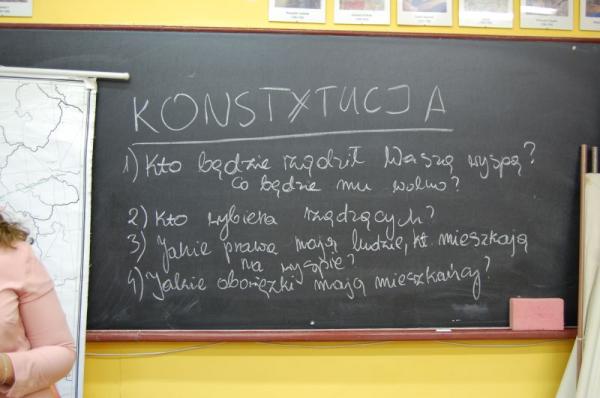 KONSTYTUCJA
1) Kto będzie rządził Waszą wyspą?
Co będzie mu wolno?
2) Kto wybiera rządzących?
3) Jakie prawa mają ludzie, kt. mieszkają
na wyspie?
4) Jakie obowiązki mają mieszkańcy?